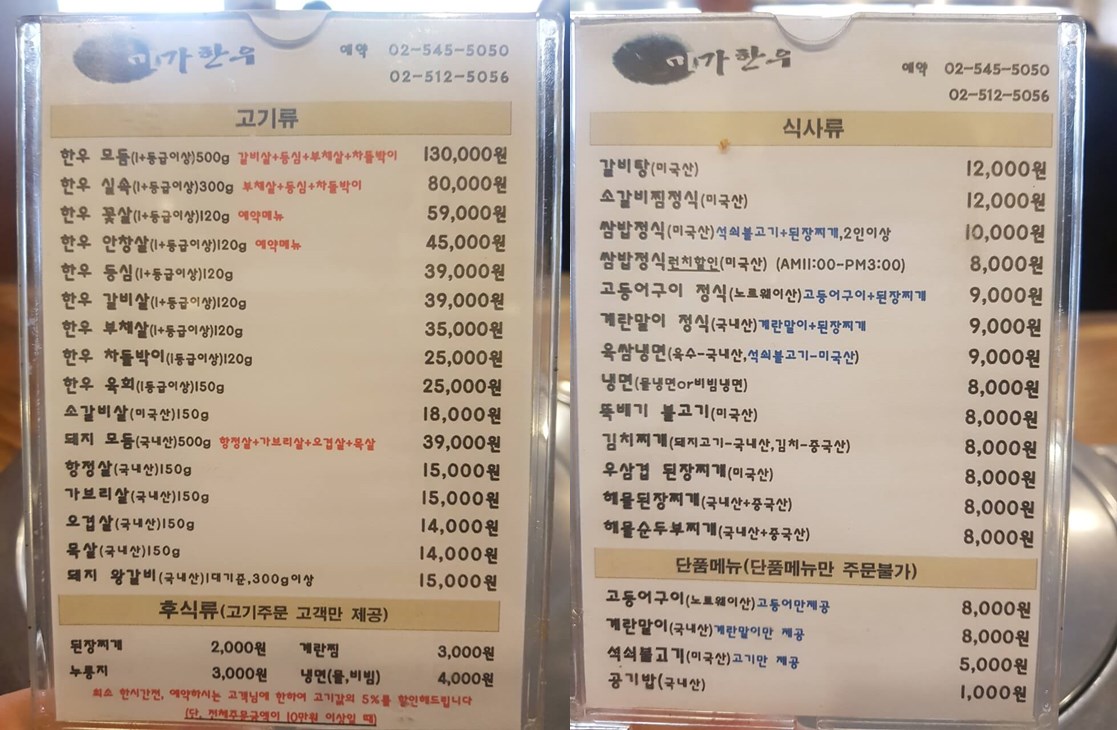 미가한우
예약 02-545-5050
02-512-5056
고기류
한우 모듬(1+등급이상)500g 갈비살+등심+부채살+차돌박이 130,000원
한우 실속(1+등급이상)300g 부채살+등심+차돌박이 80,000원
한우 꽃살(1+등급이상)120g 예약메뉴 59,000원
한우 안창살(1+등급이상)120g 예약메뉴 45,000원
한우 등심(1+등급이상)120g 39,000원
한우 갈비살(1+등급이상)120g 39,000원
한우 부채살(1+등급이상)120g 35,000원
한우 차돌박이(1등급이상)120g 25,000원
한우 육회(1등급이상)150g 25,000원
소갈비살(미국산)150g 18,000원
돼지 모듬(국내산)500g 항정살+가브리살+오겹살+목살 39,000원
항정살(국내산)150g 15,000원
가브리살(국내산)150g 15,000원
오겹살(국내산)150g 14,000원
목살(국내산)150g 14,000원
돼지 왕갈비(국내산)1대기준,300g이상 15,000원
후식류(고기주문 고객만 제공)
된장찌개 2,000원 계란찜 3,000원
누룽지 3,000원 냉면(물,비빔) 4,000원
최소 한시간전, 예약하시는 고객님에 한하여 고기값의 5%를 할인해드립니다
(단, 전체주문금액이 10만원 이상일 때)
미가한우
예약 02-545-5050
02-512-5056
식사류
갈비탕(미국산) 12,000원
소갈비찜정식(미국산) 12,000원
쌈밥정식(미국산)석쇠불고기+된장찌개,2인이상 10,000원
쌈밥정식런치할인(미국산) (AM11:00-PM3:00) 8,000원
고등어구이 정식(노르웨이산)고등어구이+된장찌개 9,000원
계란말이 정식(국내산)계란말이+된장찌개 9,000원
육쌈냉면(육수-국내산,석쇠불고기-미국산) 9,000원
냉면(물냉면or비빔냉면) 8,000원
뚝배기 불고기(미국산) 8,000원
김치찌개(돼지고기-국내산,김치-중국산) 8,000원
우삼겹 된장찌개(미국산) 8,000원
해물된장찌개(국내산+중국산) 8,000원
해물순두부찌개(국내산+중국산) 8,000원
단품메뉴(단품메뉴만 주문불가)
고등어구이(노르웨이산)고등어만제공 8,000원
계란말이(국내산)계란말이만 제공 8,000원
석쇠불고기(미국산)고기만 제공 5,000원
공기밥(국내산) 1,000원